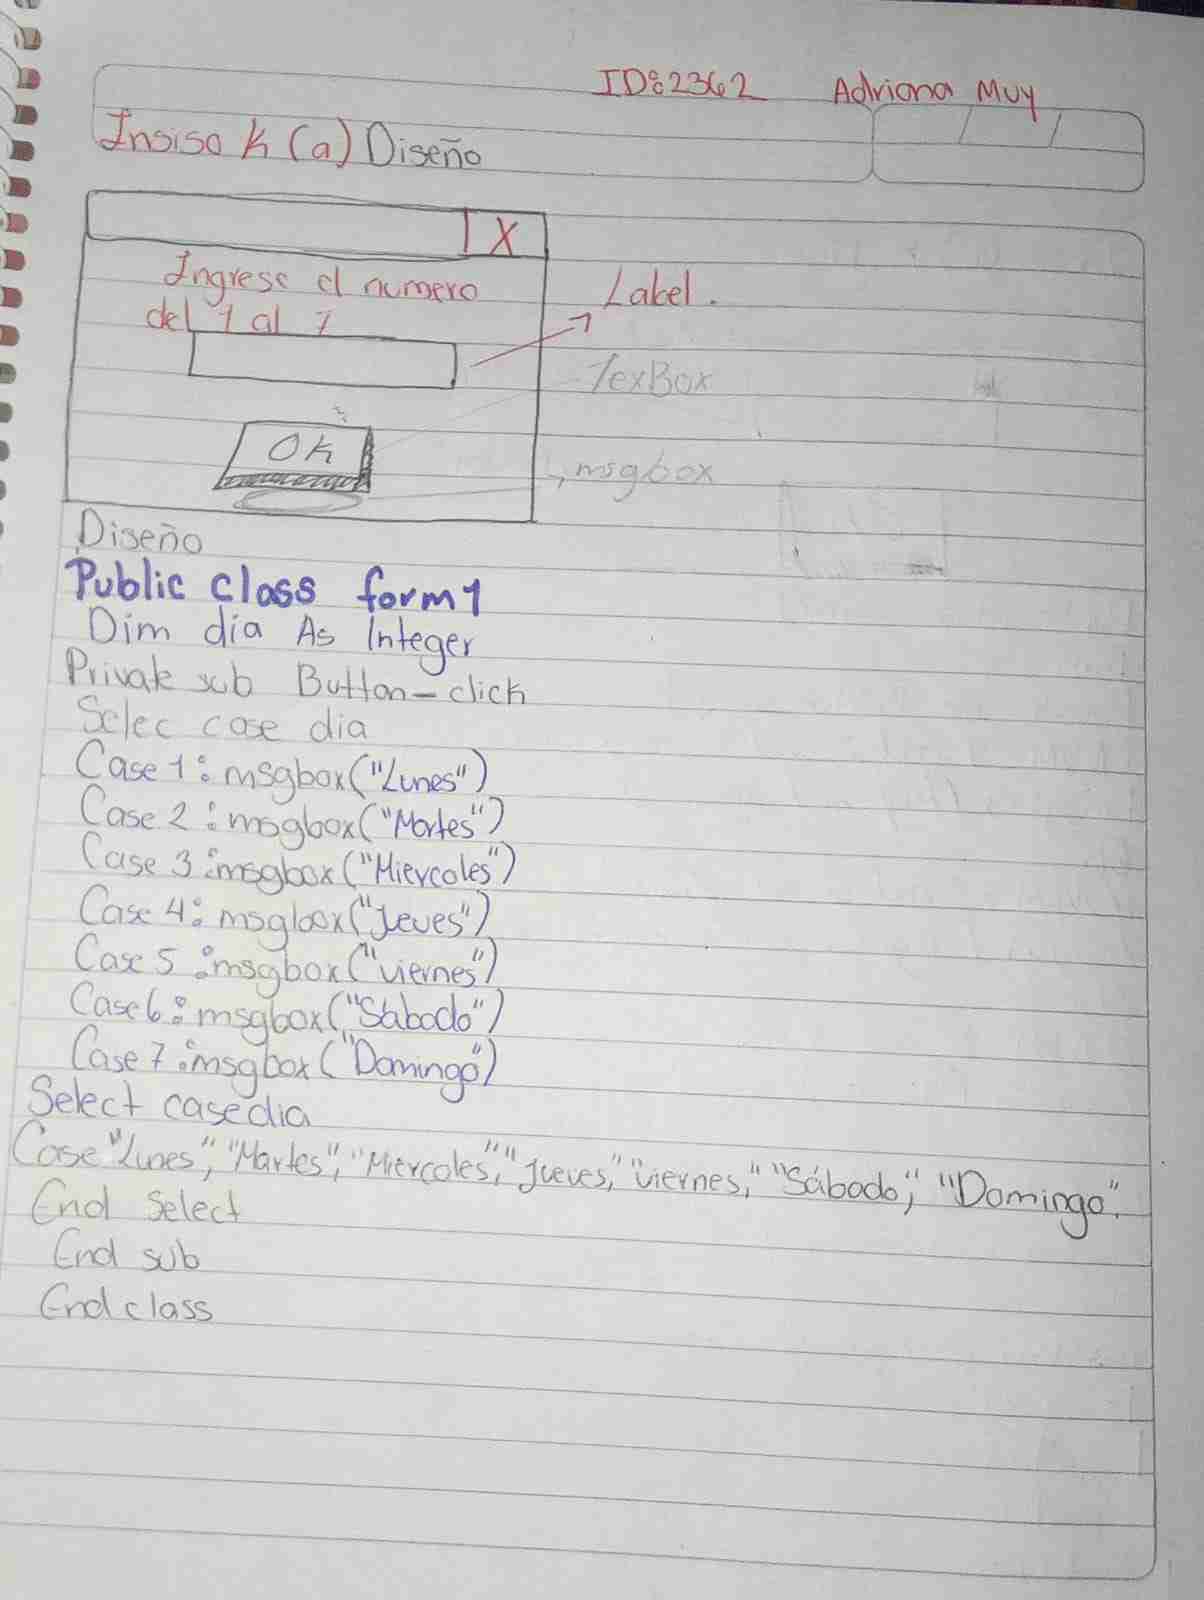 ID:2362 Adriana Muy
Insiso k (a) Diseño
X
Ingrese el numero
del 1 al 7
Label.
TexBox
OK
msgbox
Diseño
Public class form1
Dim dia As Integer
Private sub Button-click
Selec case dia
Case 1: msgbox("Lunes")
Case 2: msgbox("Martes")
Case 3: msgbox("Miercoles")
Case 4: msgbox("Jeves")
Case 5: msgbox("viernes")
Case 6: msgbox("Sábado")
Case 7: msgbox("Domingo")
Select case dia
Case "Lunes", "Martes", "Miercoles", "Jueves," "viernes," "Sábado", "Domingo".
End Select
End sub
End class